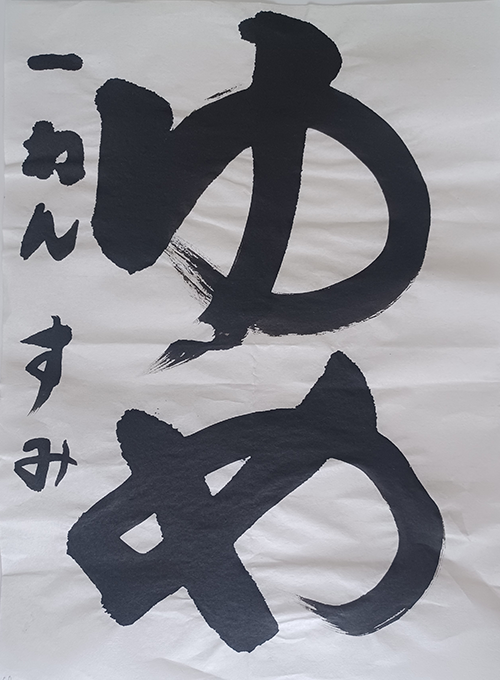 ゆめ
一ねん すみ